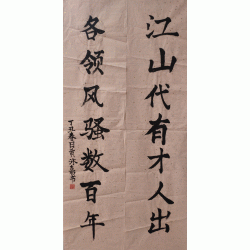 江山代有才人出
各领风骚数百年
丁丑春日